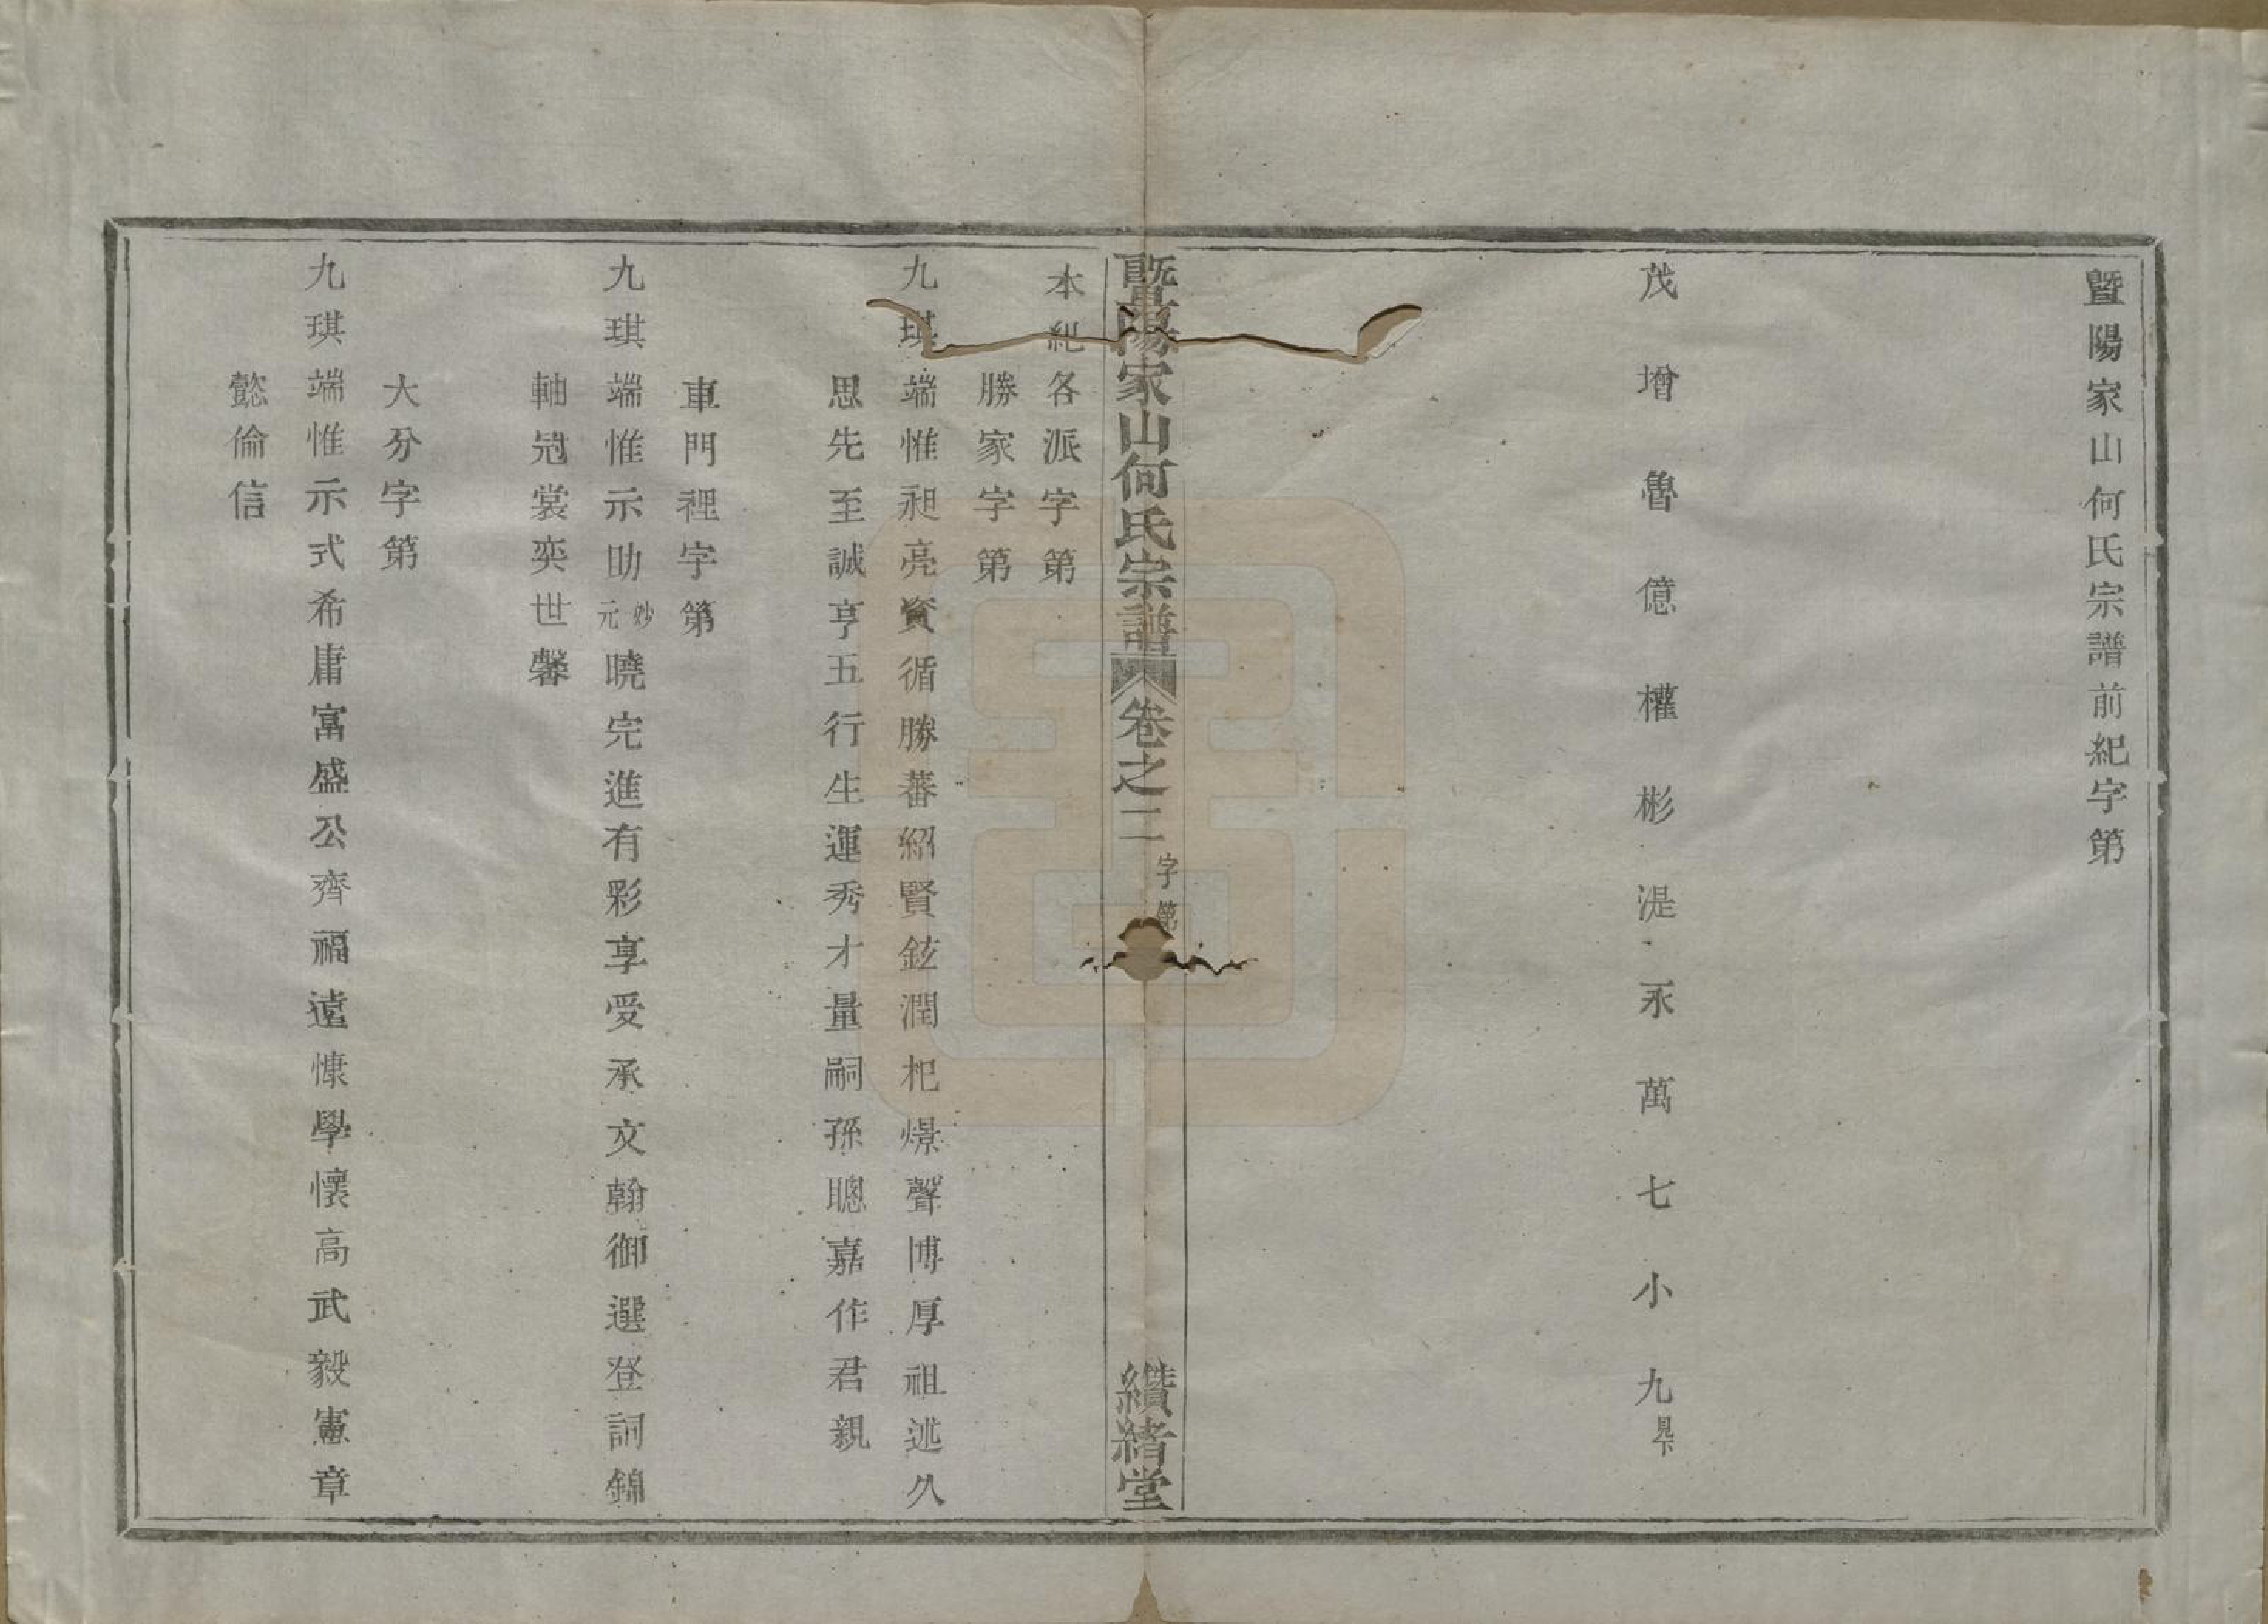 暨陽家山何氏宗譜前紀字第
茂增魯億權彬湜永萬七小九見下
暨陽家山何氏宗譜 卷之二 字第 纘緒堂
本紀各派字第
勝家字第
九琪端惟昶亮資循勝蕃紹賢鉉潤杞燝聲博厚祖述久
思先至誠亨五行生運秀才量嗣孫聰嘉作君親
車門裡字第
九琪端惟示助妙元曉完進有彩享受承文翰御選登詞錦
軸冠裳奕世馨
大分字第
九琪端惟示式希庸富盛公齊福遠慷學懷高武毅憲章
懿倫信